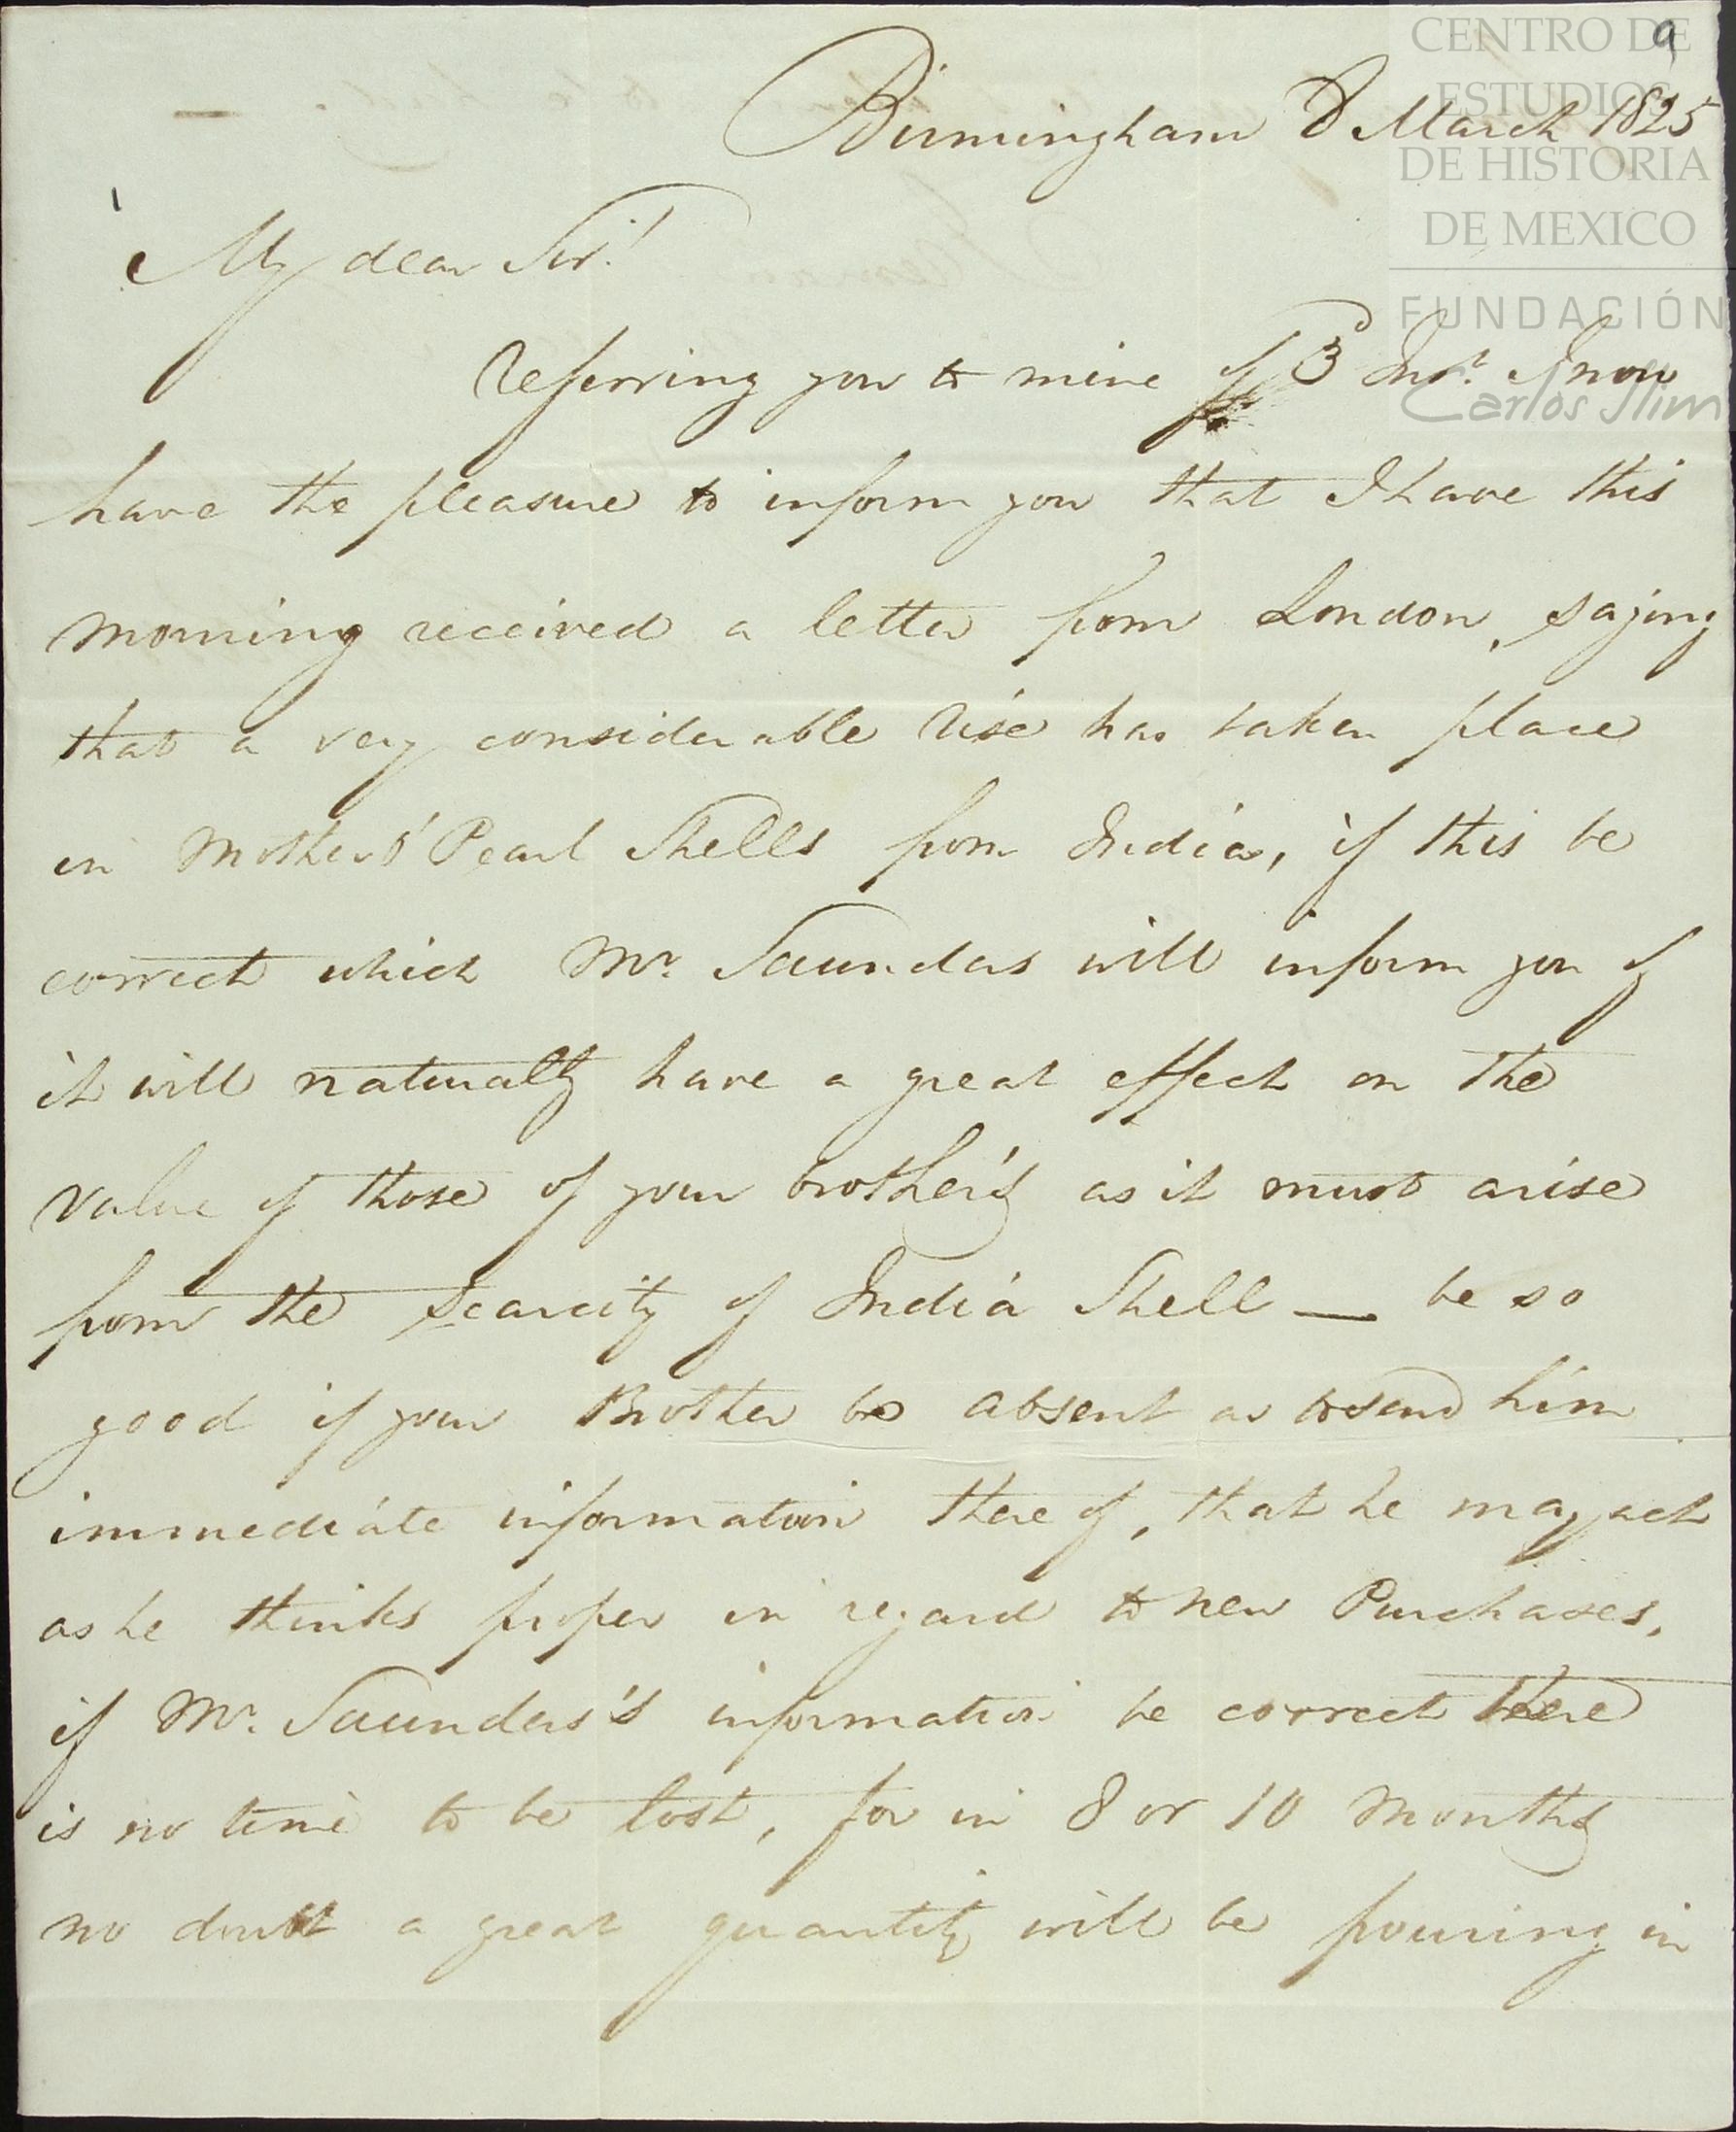 9
CENTRO DE
ESTUDIOS
DE HISTORIA
DE MEXICO
FUNDACIÓN
Carlos Slim
Birmingham 8 March 1825
My dear Sir!
Referring you to mine of 3 Inst. I now
have the pleasure to inform you that I have this
morning received a letter from London, saying
that a very considerable rise has taken place
in Mother o' Pearl Shells from India, if this be
correct which Mr. Saunders will inform you of
it will naturally have a great effect on the
value of those of your brother's as it must arise
from the Scarcity of India Shell — be so
good if your Brother be absent as to send him
immediate information there of, that he may act
as he thinks proper in regard to new Purchases,
if Mr. Saunders's information be correct there
is no time to be lost, for in 8 or 10 Months
no doubt a great quantity will be pouring in